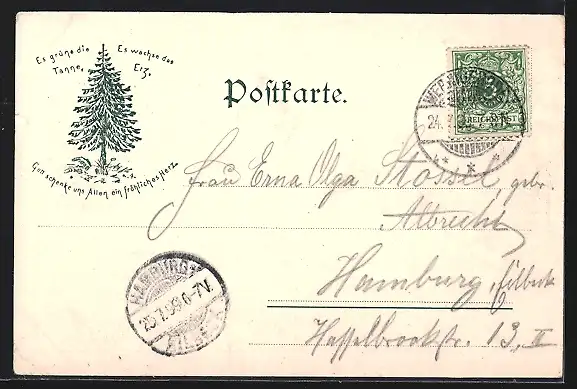 Es grüne die Tanne,
Es wachse das Erz,
Gott schenke uns Allen ein fröhliches Herz
Postkarte.
REICHSPOST
Frau Erna Olga Stossel, gebr.
Albrecht
Hamburg, Eilbeck
Hasselbrookstr. 13, II
HAMBURG
25.7.98.6-7V.